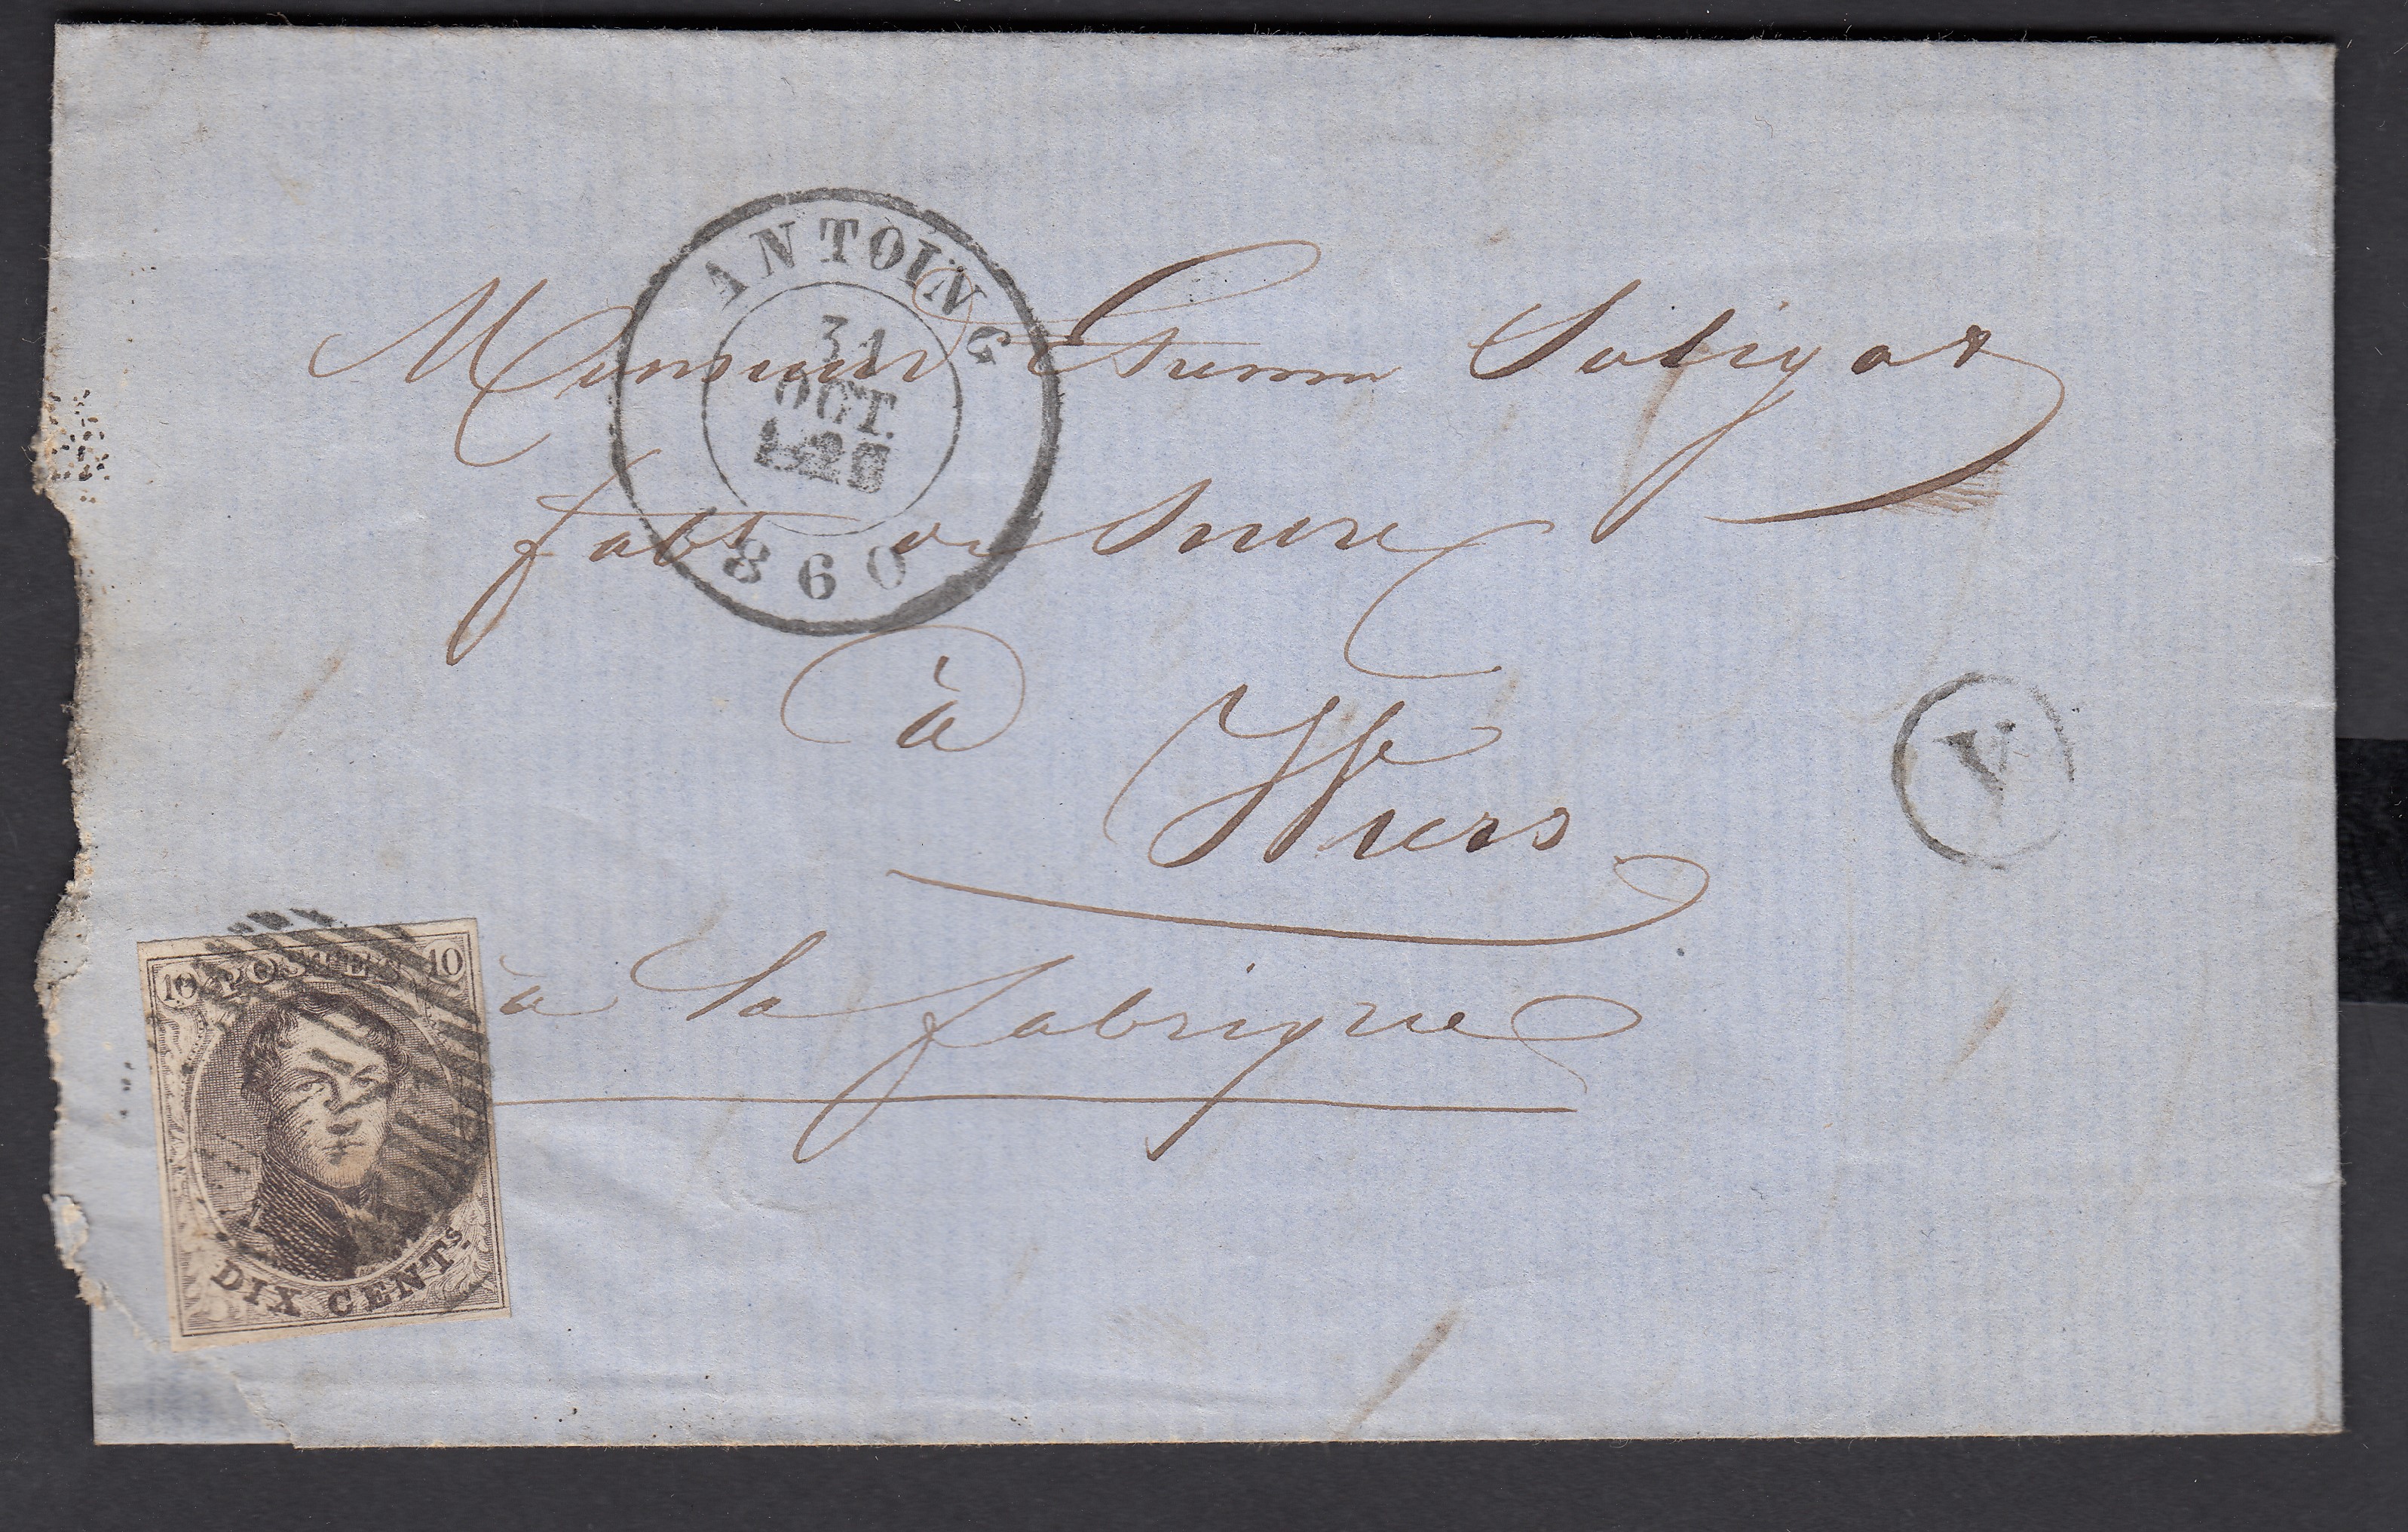 ANTOING
31
OCT.
860
Monsieur Etienne
fabt de Sucre
à
Wiers
à la fabrique
Y
10 POSTES 10
DIX CENTS.